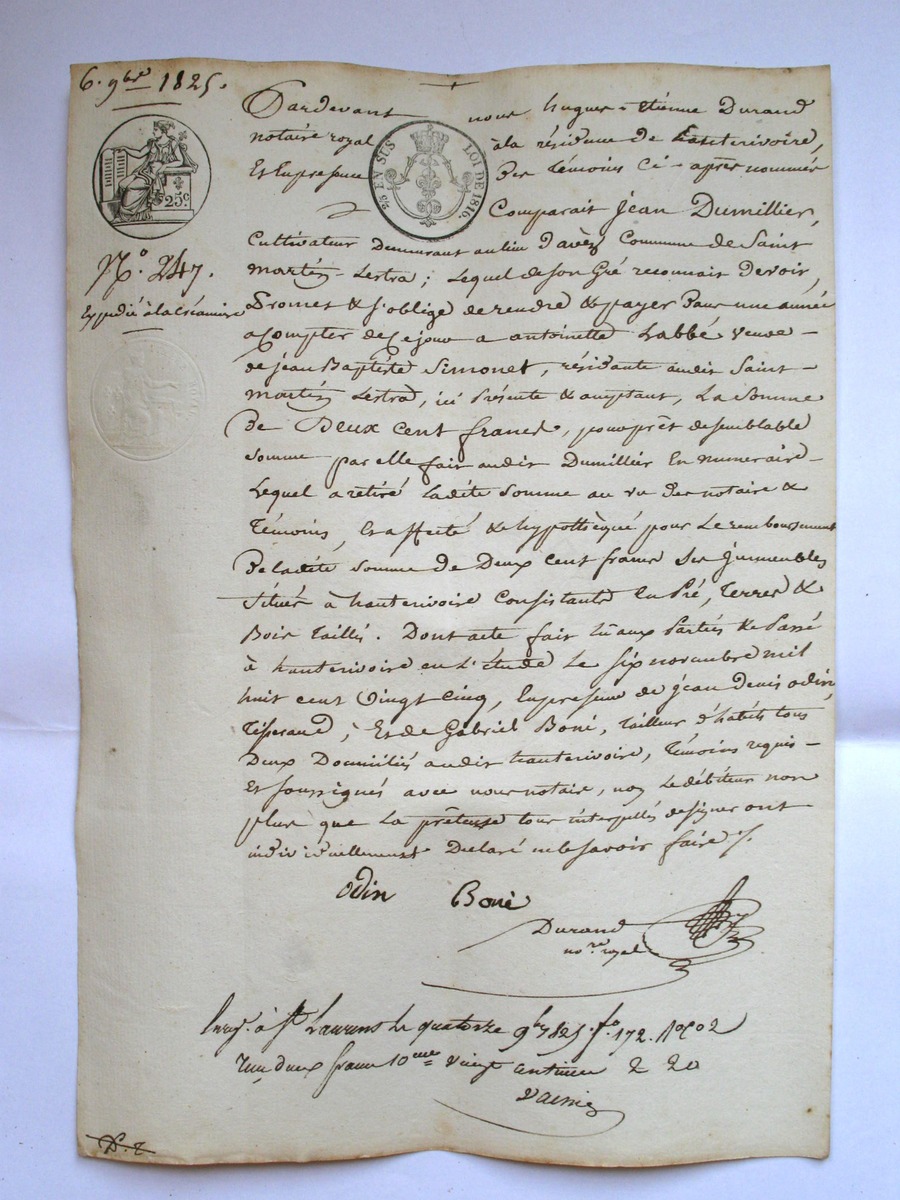 6. 9bre 1825.
Pardevant nous hugues-étienne Durand
notaire royal à la résidence de hauterivoire,
Et En presence Des témoins Ci-après nommés
25c
2/10 EN SUS LOI DE 1816.
Comparait jean Dumillier,
Cultivateur demeurant au lieu D'avèz Commune de Saint
N.o 247.
martin-Lestra ; Lequel de son Gré reconnait devoir,
Expédié à la créancière
Promet & s'oblige de rendre & payer Dans une année
a Compter de Ce jour a antoinette Labbé veuve
de jean Baptiste Simonet, résidante audit Saint-
martin Lestra, ici Présente & acceptant, La Somme
De Deux Cent francs, pour prêt de semblable
somme par elle fait audit Dumillier En numeraire
Lequel a retiré Ladite somme au vu des notaire &
Témoins, Et affecté & hypothèqué pour Le remboursement
De ladite somme de Deux Cent francs Ses immeubles
situés à hauterivoire Consistants En Pré, Terres &
Bois taillis. Dont acte fait Lu aux Parties & Passé
à hauterivoire en L'étude Le six novembre mil
huit cent Vingt Cinq, En presence de jean denis odin,
Tisserand ; Et de Gabriel Boni, tailleur d'habits tous
Deux Domiciliés audit hauterivoire, Témoins requis
Et soussignés avec nous notaire, non Le débiteur non
plus que La prêteuse tous interpellés de signer ont
individuellement Declaré ne le savoir faire ./.
odin Boni
Durand
nore royal
Enreg. à St Laurent Le quatorze 9bre 1825 fo 172. Ro Co 2
Reçu deux francs 10eme vingt centimes 2 20